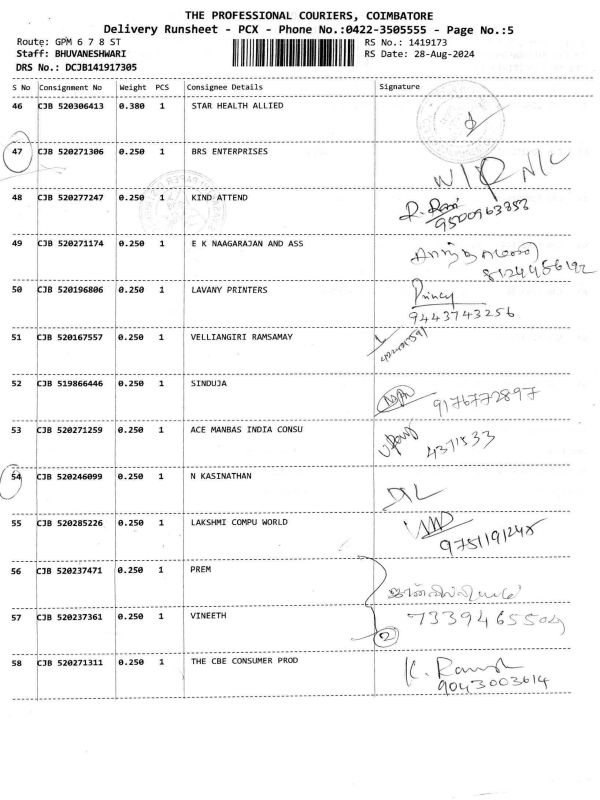 THE PROFESSIONAL COURIERS, COIMBATORE
Delivery Runsheet - PCX - Phone No.:0422-3505555 - Page No.:5
Route: GPM 6 7 8 ST RS No.: 1419173
Staff: BHUVANESHWARI RS Date: 28-Aug-2024
DRS No.: DCJB141917305
S No Consignment No Weight PCS Consignee Details Signature
46 CJB 520306413 0.380 1 STAR HEALTH ALLIED
47 CJB 520271306 0.250 1 BRS ENTERPRISES
48 CJB 520277247 0.250 1 KIND ATTEND
9500963353
49 CJB 520271174 0.250 1 E K NAAGARAJAN AND ASS
8124456192
50 CJB 520196806 0.250 1 LAVANY PRINTERS Princy
9443743256
51 CJB 520167557 0.250 1 VELLIANGIRI RAMSAMAY
52 CJB 519866446 0.250 1 SINDUJA
9176772897
53 CJB 520271259 0.250 1 ACE MANBAS INDIA CONSU
4371533
54 CJB 520246099 0.250 1 N KASINATHAN
55 CJB 520285226 0.250 1 LAKSHMI COMPU WORLD
56 CJB 520237471 0.250 1 PREM
57 CJB 520237361 0.250 1 VINEETH
2
58 CJB 520271311 0.250 1 THE CBE CONSUMER PROD
9043003614